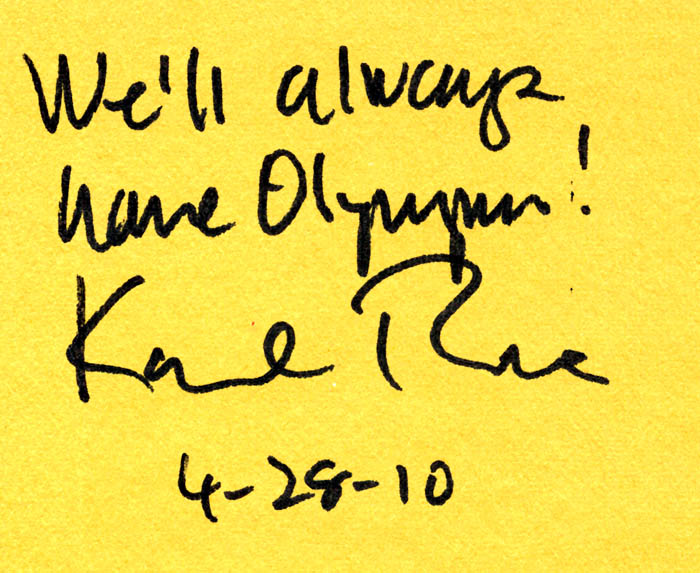 We'll always
have Olympus!
Karl Rove
4-28-10